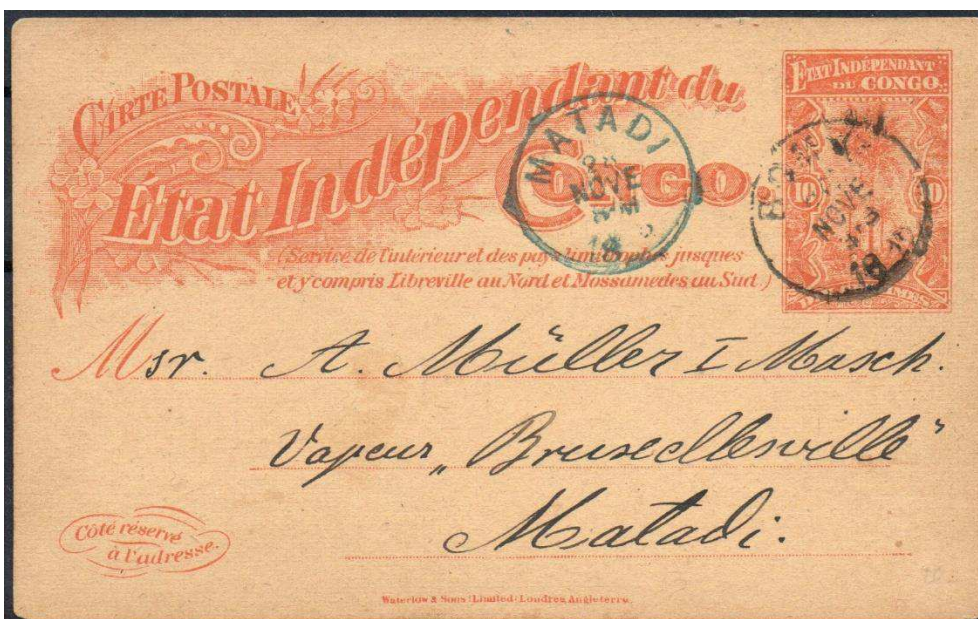 CARTE POSTALE
État Indépendant du
Congo.
(Service de l'intérieur et des pays limitrophes jusques
et y compris Libreville au Nord et Mossamedes au Sud.)
ETAT INDÉPENDANT
DU CONGO.
10
MATADI
NOVE
18
NOVE
19
Msr. A. Müller I Masch.
Vapeur „Bruxellesville"
Matadi.
Côté réservé
à l'adresse.
Waterlow & Sons Limited Londres, Angleterre.